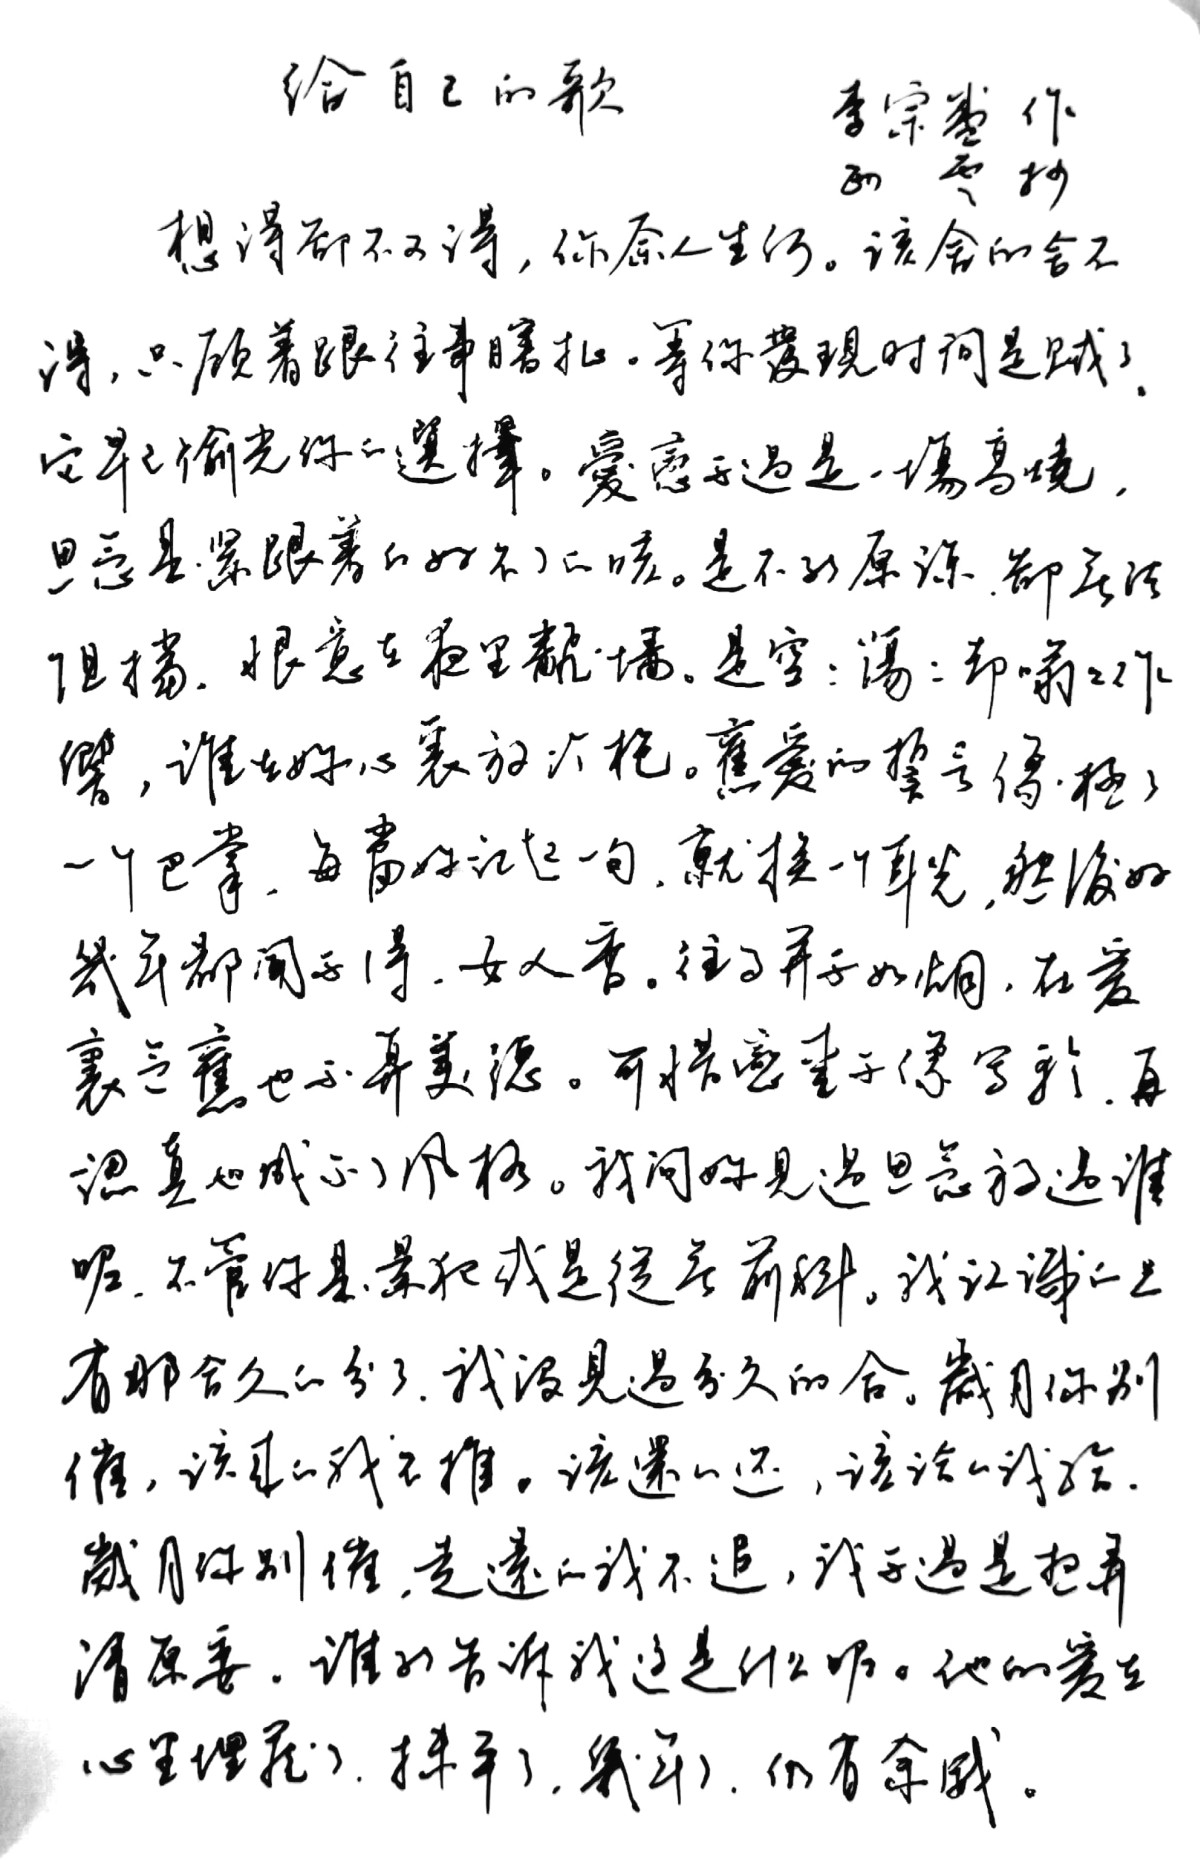 给自己的歌
李宗盛 作
雲 抄
想得却不可得，你奈人生何。该舍的舍不
得，只顾着跟往事瞎扯。等你發現时间是贼了，
它早已偷光你的選擇。愛恋不過是一場高燒，
思念是紧跟着的好不了的咳。是不能原谅，却无法
阻擋，恨意在夜里翻墙。是空：荡：却嗡：作
響，谁在妳心裏放冷枪。舊愛的誓言像极了
一个巴掌，每當妳记起一句，就挨一个耳光，然後好
幾年都闻不得，女人香。往事并不如烟，在爱
裏念舊也不算美德。可惜戀愛不像写歌，再
認真也成不了风格。我问妳見過思念放過谁
呢，不管你是累犯或是從无前科。我认識的只
有那合久的分了，我没見過分久的合。歲月你别
催，该来的我不推。该還的还，该给的我给。
歲月你别催，走遠的我不追，我不過是想弄
清原委。谁能告诉我这是什么呢。他的爱在
心里埋葬了，抹平了，幾年了，仍有余威。